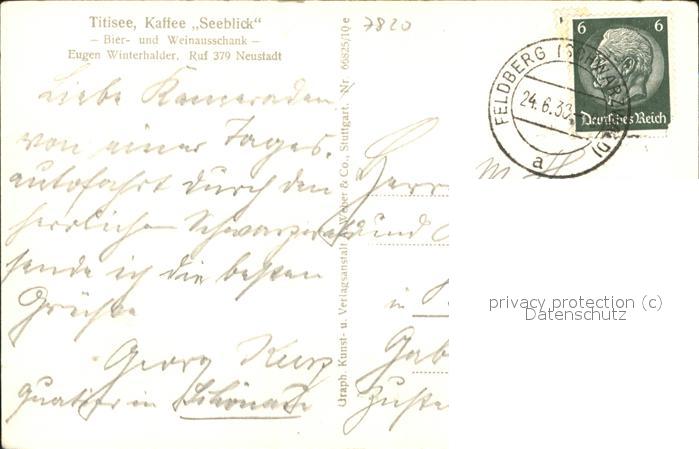 Titisee, Kaffee „Seeblick“
– Bier- und Weinausschank –
Eugen Winterhalder, Ruf 379 Neustadt
7820
Liebe Kameraden
von einer Tages-
autofahrt durch den
herrlichen Schwarzwald
sende ich die besten
Grüße
Georg Kurz
Quartier in Schönach
Graph. Kunst- u. Verlagsanstalt Weber & Co., Stuttgart. Nr. 66825/10e
6 6
Deutsches Reich
FELDBERG (SCHWARZWALD)
24.6.33
a
Herr
und
in
Gab
Zuste
privacy protection (c)
Datenschutz